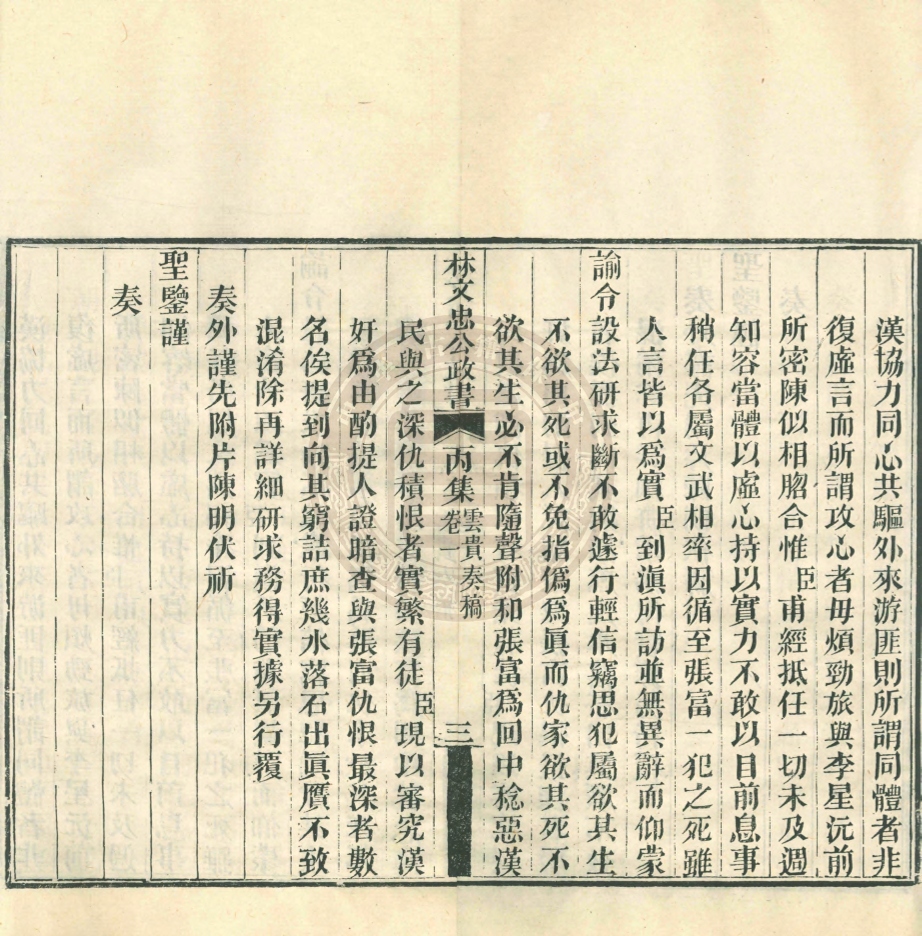 漢協力同心共驅外來游匪則所謂同體者非
復虛言而所謂攻心者毋煩勁旅與李星沅前
所密陳似相脗合惟臣甫經抵任一切未及週
知容當體以虛心持以實力不敢以目前息事
稍任各屬文武相率因循至張富一犯之死雖
人言皆以爲實臣到滇所訪並無異辭而仰蒙
諭令設法研求斷不敢遽行輕信竊思犯屬欲其生
不欲其死或不免指僞爲眞而仇家欲其死不
欲其生必不肯隨聲附和張富爲回中稔惡漢
林文忠公政書 丙集 雲貴奏稿卷一 三
民與之深仇積恨者實繁有徒臣現以審究漢
奸爲由酌提人證暗查與張富仇恨最深者數
名俟提到向其窮詰庶幾水落石出眞贋不致
混淆除再詳細研求務得實據另行覆
奏外謹先附片陳明伏祈
聖鑒謹
奏